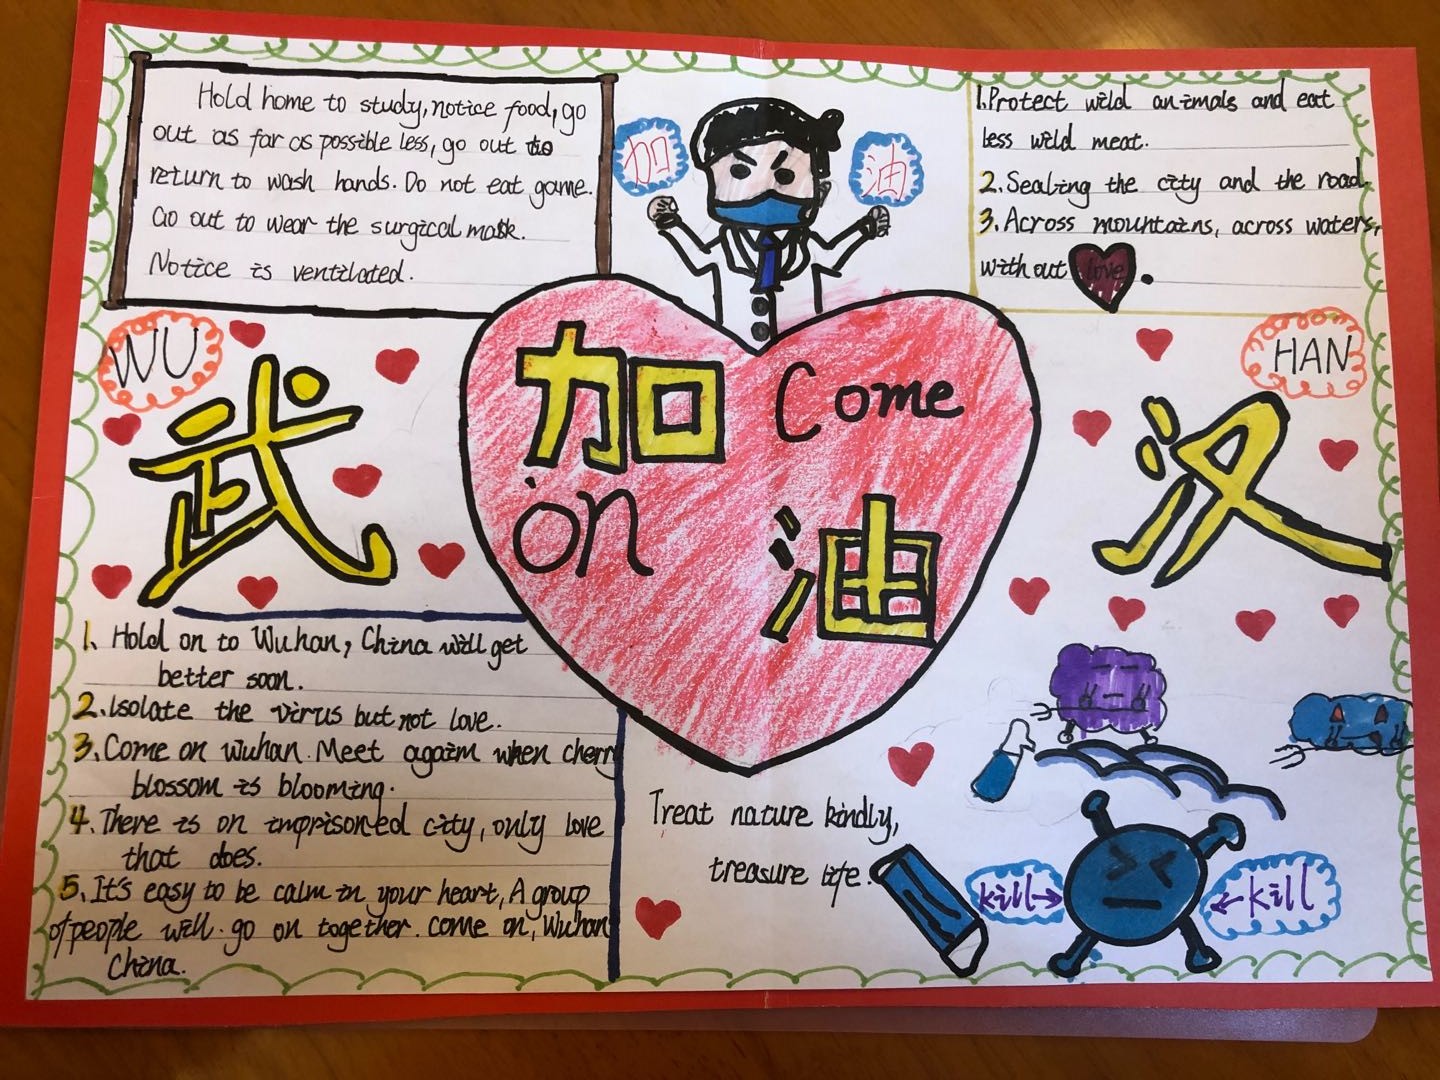 Hold home to study, notice food, go
out as far as possible less, go out to
return to wash hands. Do not eat game.
Go out to wear the surgical mask.
Notice is ventilated.
加
油
1.Protect wild animals and eat
less wild meat.
2.Sealing the city and the road
3.Across mountains, across waters,
without love.
WU
武
加 Come
on 油
HAN
汉
1. Hold on to Wuhan, China will get
better soon.
2.Isolate the virus but not love.
3.Come on wuhan. Meet again when cherry
blossom is blooming.
4.There is on imprisoned city, only love
that does.
5.It's easy to be calm in your heart, A group
of people will. go on together. come on, Wuhan
China.
Treat nature kindly,
treasure life.
kill
kill